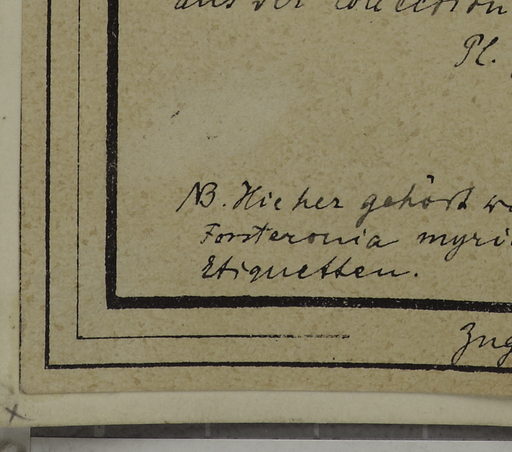 aus der Collection
Pl.
NB. Hieher gehört
Forsteronia myri
Etiquetten.
Zug